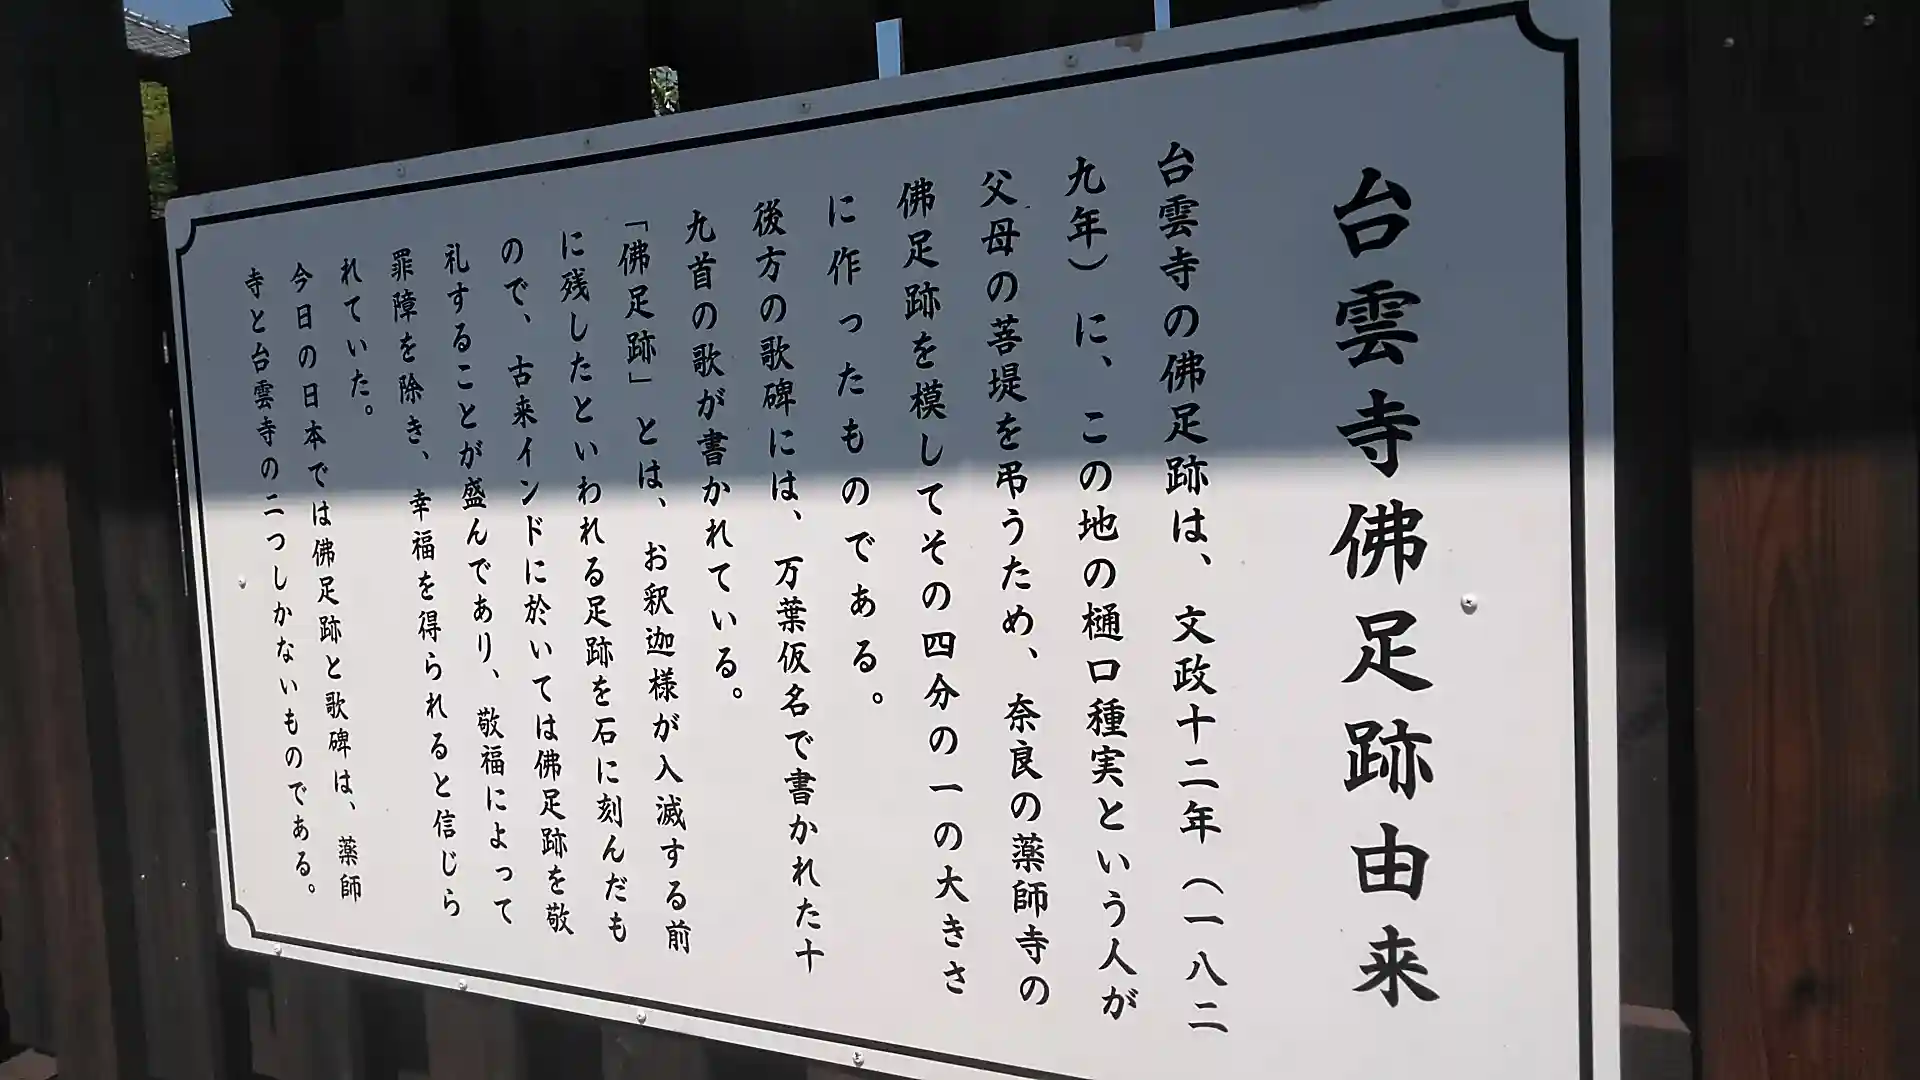 台雲寺佛足跡由来
台雲寺の佛足跡は、文政十二年（一八二
九年）に、この地の樋口種実という人が
父母の菩提を弔うため、奈良の薬師寺の
佛足跡を模してその四分の一の大きさ
に作ったものである。
後方の歌碑には、万葉仮名で書かれた十
九首の歌が書かれている。
「佛足跡」とは、お釈迦様が入滅する前
に残したといわれる足跡を石に刻んだも
ので、古来インドに於いては佛足跡を敬
礼することが盛んであり、敬福によって
罪障を除き、幸福を得られると信じら
れていた。
今日の日本では佛足跡と歌碑は、薬師
寺と台雲寺の二つしかないものである。